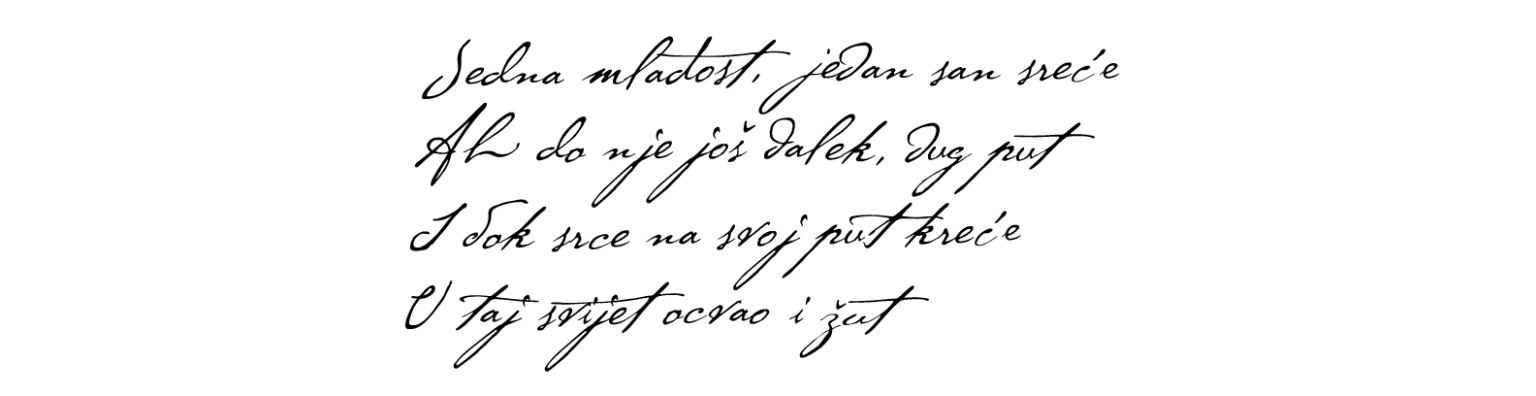 Jedna mladost, jedan san sreće
Ah do nje još dalek, dug put
I dok srce na svoj put kreće
U taj svijet ocvao i žut